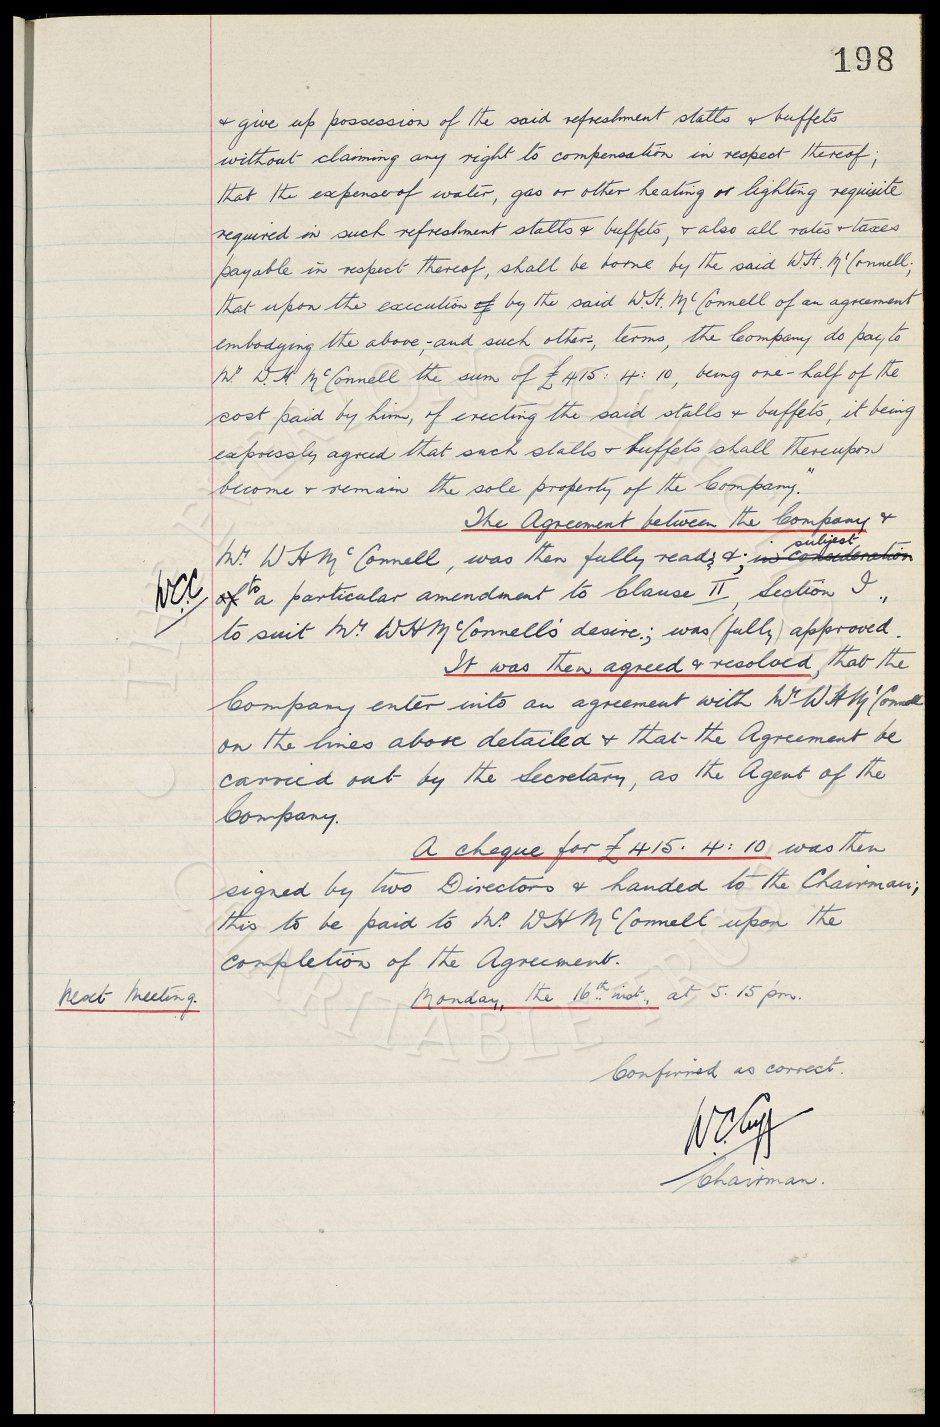 198
& give up possession of the said refreshment stalls & buffets
without claiming any right to compensation in respect thereof;
that the expense of water, gas or other heating or lighting requisite
required in such refreshment stalls & buffets, & also all rates & taxes
payable in respect thereof, shall be borne by the said W.H. McConnell;
that upon the execution of by the said W.H. McConnell of an agreement
embodying the above,-and such other-, terms, the Company do pay to
Mr. W.H McConnell the sum of £415: 4: 10, being one-half of the
cost paid by him, of erecting the said stalls & buffets, it being
expressly agreed that such stalls & buffets shall thereupon
become & remain the sole property of the Company."
The Agreement between the Company &
Mr. W H McConnell, was then fully read; &; in consideration
subject
WCC
of to a particular amendment to Clause II, Section I.,
to suit Mr. W H McConnell's desire.; was (fully) approved.
It was then agreed & resolved, that the
Company enter into an agreement with Mr. W H McConnell
on the lines above detailed & that the Agreement be
carried out by the Secretary, as the Agent of the
Company.
A cheque for £415. 4: 10 was then
signed by two Directors & handed to the Chairman;
this to be paid to Mr. W H McConnell upon the
completion of the Agreement.
Next Meeting.
Monday, the 16th inst., at 5.15 pm.
Confirmed as correct.
W.C. Cuff
Chairman.
THE EVERTON COLLECTION
CHARITABLE TRUST